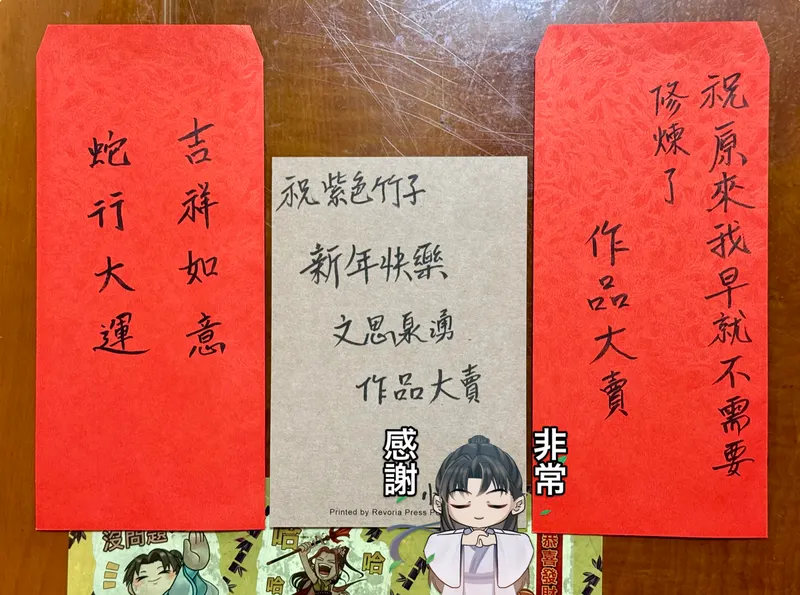 吉祥如意
蛇行大運
祝紫色竹子
新年快樂
文思泉湧
作品大賣
Printed by Revoria Press P
祝原來我早就不需要
修煉了
作品大賣
非常
感謝
沒問題
哈
哈
哈
恭喜發財